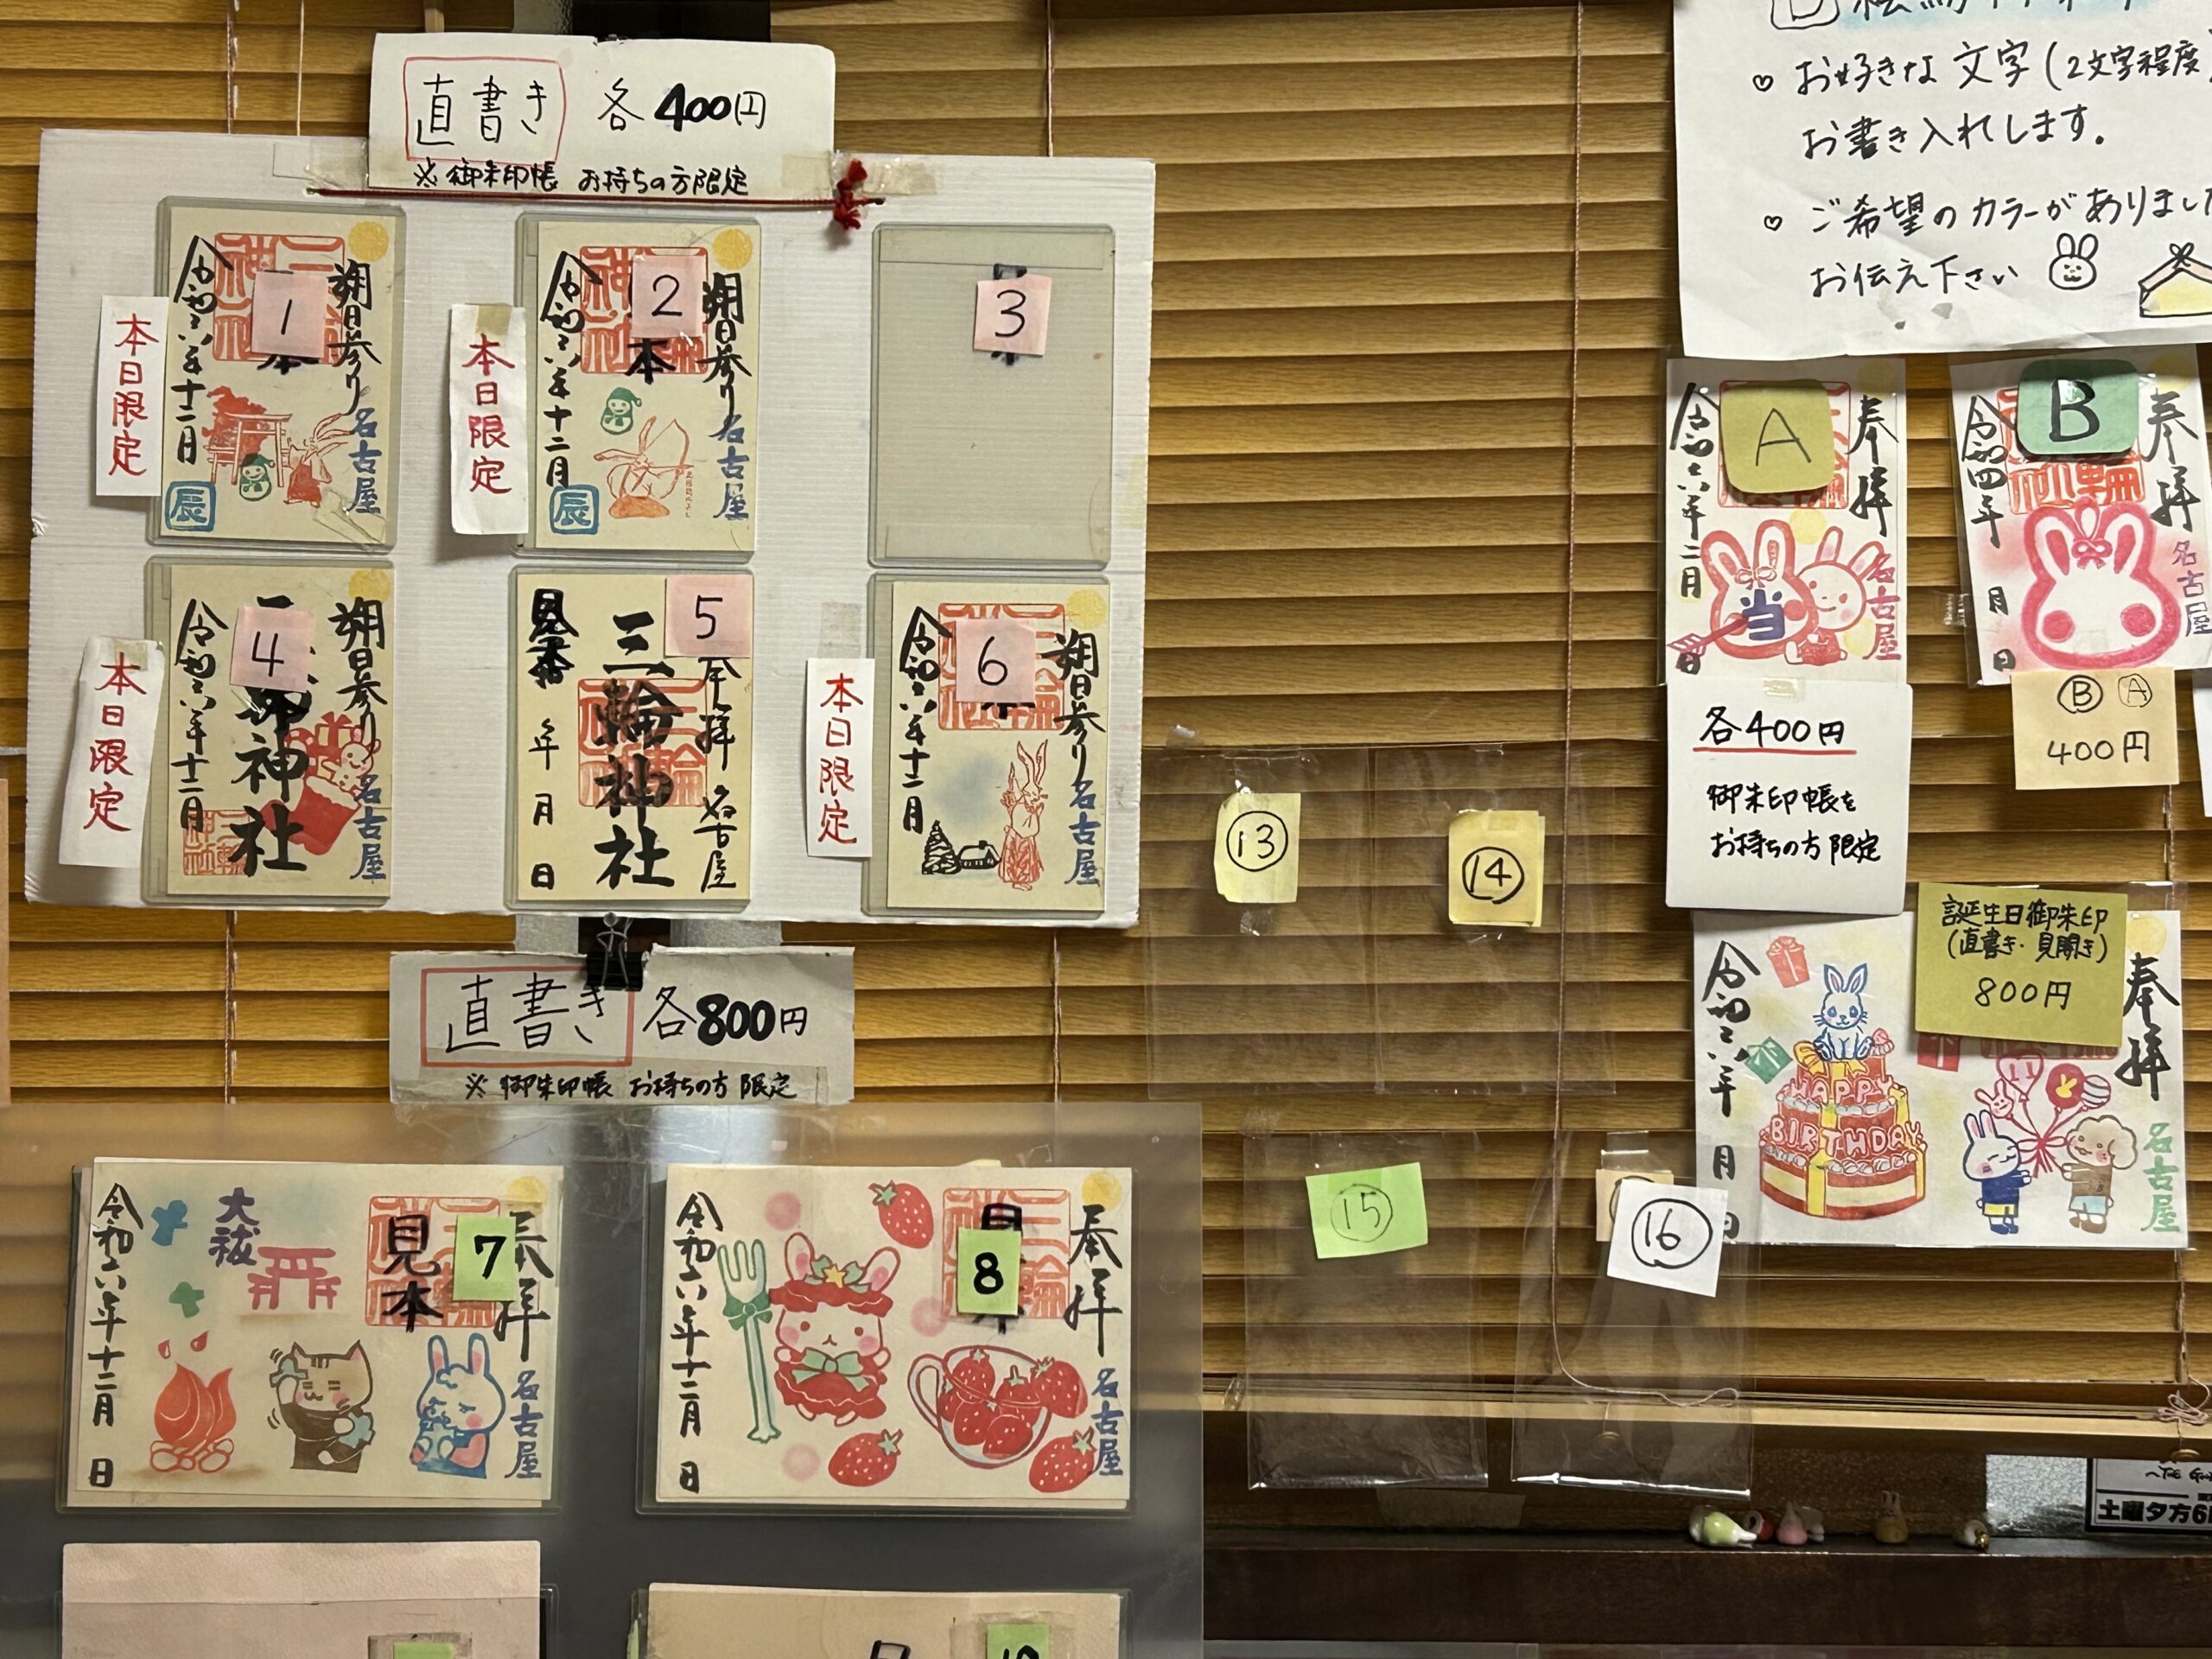 直書き 各400円
※御朱印帳 お持ちの方限定
1
朔日参り
本
令和六年十二月
名古屋
辰
本日限定
2
朔日参り
本
令和六年十二月
名古屋
辰
本日限定
3
4
朔日参り
神社
令和六年十二月
名古屋
本日限定
5
奉拝
三輪神社
見本
年 月 日
名古屋
6
朔日参り
令和六年十二月
名古屋
本日限定
直書き 各800円
※御朱印帳 お持ちの方限定
7
奉拝
見本
大祓
令和六年十二月 日
名古屋
8
奉拝
令和六年十二月 日
名古屋
⑬
⑭
⑮
⑯
♡ お好きな文字(2文字程度)
お書き入れします。
♡ ご希望のカラーがありまし
お伝え下さい
A
奉拝
令和六年二月 日
当
名古屋
B
奉拝
令和四年 月 日
名古屋
各400円
御朱印帳を
お持ちの方限定
Ⓑ Ⓐ
400円
誕生日御朱印
(直書き・見開き)
800円
奉拝
令和六年 月 日
HAPPY
BIRTHDAY
名古屋
土曜夕方6